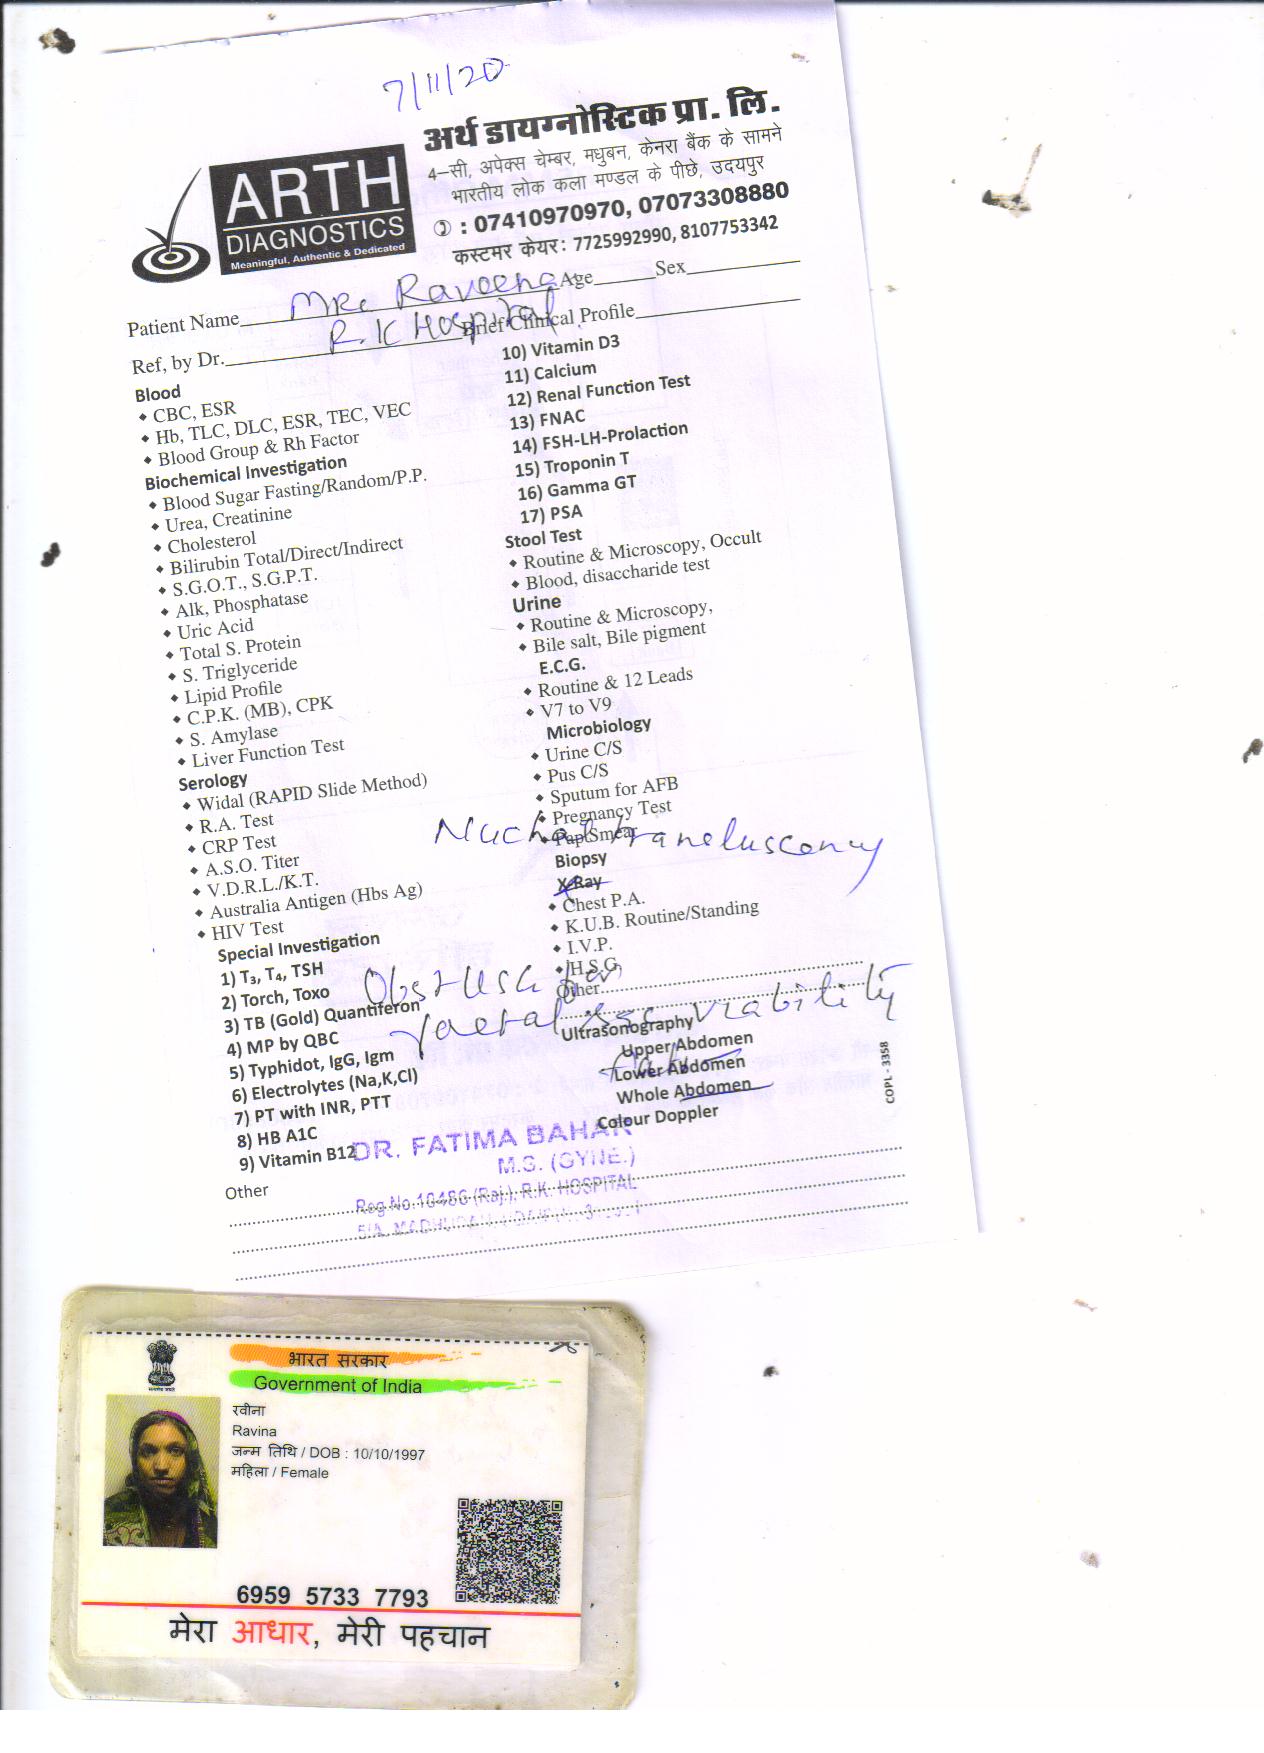 7/11/20
अर्थ डायग्नोस्टिक प्रा. लि.
4–सी, अपेक्स चेम्बर, मधुबन, केनरा बैंक के सामने
भारतीय लोक कला मण्डल के पीछे, उदयपुर
: 07410970970, 07073308880
कस्टमर केयर: 7725992990, 8107753342
ARTH
DIAGNOSTICS
Meaningful, Authentic & Dedicated
Patient Name Mrs Raveena Age Sex
Ref, by Dr. R.K Hospital Brief Clinical Profile
Blood
CBC, ESR
Hb, TLC, DLC, ESR, TEC, VEC
Blood Group & Rh Factor
Biochemical Investigation
Blood Sugar Fasting/Random/P.P.
Urea, Creatinine
Cholesterol
Bilirubin Total/Direct/Indirect
S.G.O.T., S.G.P.T.
Alk, Phosphatase
Uric Acid
Total S. Protein
S. Triglyceride
Lipid Profile
C.P.K. (MB), CPK
S. Amylase
Liver Function Test
Serology
Widal (RAPID Slide Method)
R.A. Test
CRP Test
A.S.O. Titer
V.D.R.L./K.T.
Australia Antigen (Hbs Ag)
HIV Test
Special Investigation
1) T₃, T₄, TSH
2) Torch, Toxo
3) TB (Gold) Quantiferon
4) MP by QBC
5) Typhidot, IgG, Igm
6) Electrolytes (Na,K,Cl)
7) PT with INR, PTT
8) HB A1C
9) Vitamin B12
10) Vitamin D3
11) Calcium
12) Renal Function Test
13) FNAC
14) FSH-LH-Prolaction
15) Troponin T
16) Gamma GT
17) PSA
Stool Test
Routine & Microscopy, Occult
Blood, disaccharide test
Urine
Routine & Microscopy,
Bile salt, Bile pigment
E.C.G.
Routine & 12 Leads
V7 to V9
Microbiology
Urine C/S
Pus C/S
Sputum for AFB
Pregnancy Test
Pap Smear
Nuchal transluscency
Biopsy
X-Ray
Chest P.A.
K.U.B. Routine/Standing
I.V.P.
H.S.G.
Other
Obst USG for
Foetal viability
Ultrasonography
Upper Abdomen
Lower Abdomen
Whole Abdomen
Colour Doppler
COPL - 3358
DR. FATIMA BAHAR
M.S. (GYNE.)
Reg No. (Raj.), R.K. HOSPITAL
5/A, MADHUBAN
Other
भारत सरकार
Government of India
रवीना
Ravina
जन्म तिथि / DOB : 10/10/1997
महिला / Female
6959 5733 7793
मेरा आधार, मेरी पहचान